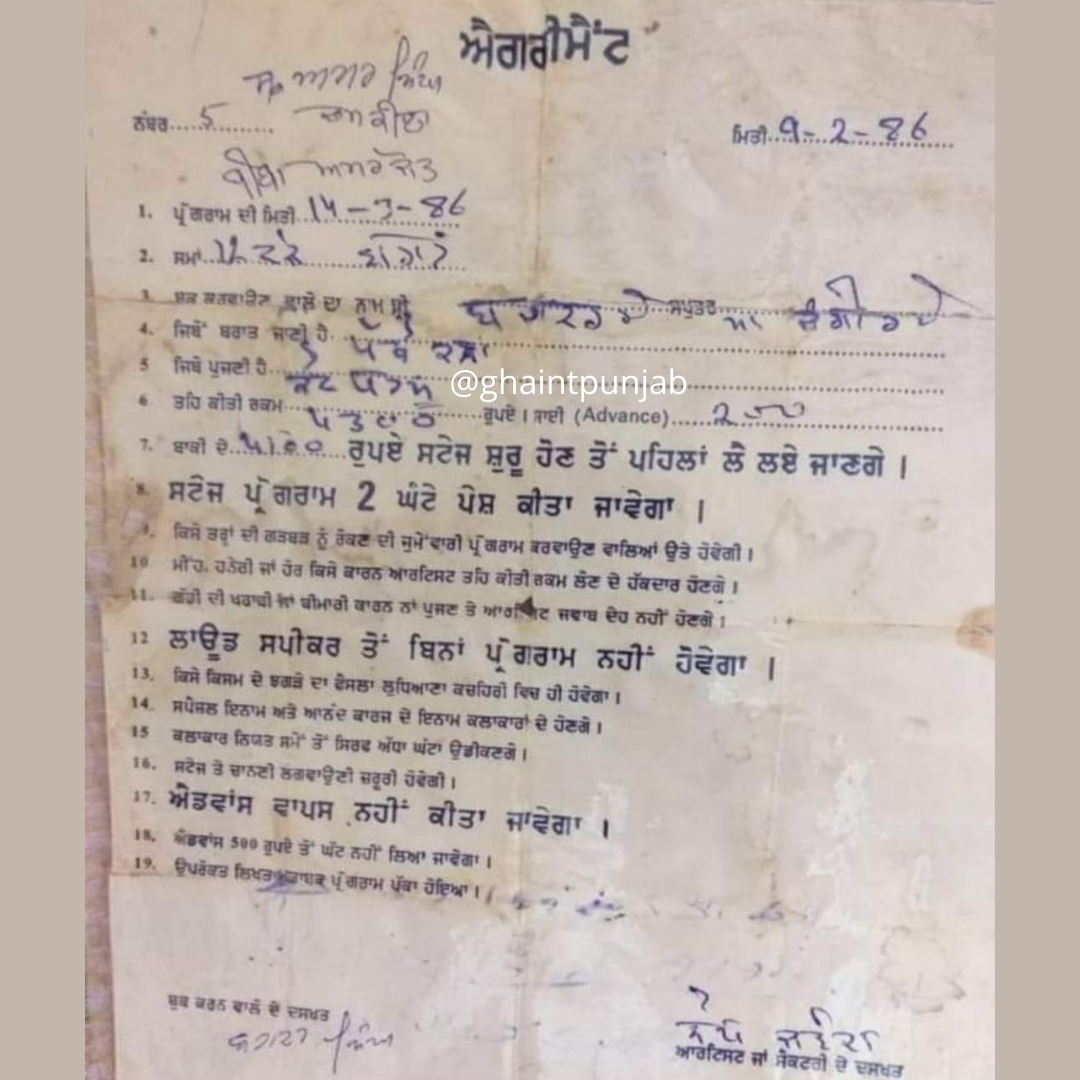 ਐਗਰੀਮੈਂਟ
ਅਮਰ ਸਿੰਘ
ਚਮਕੀਲਾ
ਨੰਬਰ 5
ਮਿਤੀ 9-2-86
ਬੀਬਾ ਅਮਰਜੋਤ
1. ਪ੍ਰੋਗਰਾਮ ਦੀ ਮਿਤੀ 14-3-86
2. ਸਮਾਂ
3. ਬੁਕ ਕਰਵਾਉਣ ਵਾਲੇ ਦਾ ਨਾਮ ਸ਼੍ਰੀ ਸਪੁਤਰ
4. ਜਿਥੋਂ ਬਰਾਤ ਜਾਣੀ ਹੈ
5 ਜਿਥੇ ਪੁਜਣੀ ਹੈ ਕੋਟ
@ghaintpunjab
6 ਤਹਿ ਕੀਤੀ ਰਕਮ ਰੁਪਏ । ਸਾਈ (Advance) 200
7. ਬਾਕੀ ਦੇ 4100 ਰੁਪਏ ਸਟੇਜ ਸ਼ੁਰੂ ਹੋਣ ਤੋਂ ਪਹਿਲਾਂ ਲੈ ਲਏ ਜਾਣਗੇ ।
8. ਸਟੇਜ ਪ੍ਰੋਗਰਾਮ 2 ਘੰਟੇ ਪੇਸ਼ ਕੀਤਾ ਜਾਵੇਗਾ ।
9. ਕਿਸੇ ਤਰ੍ਹਾਂ ਦੀ ਗੜਬੜ ਨੂੰ ਰੋਕਣ ਦੀ ਜੁਮੇਂਵਾਰੀ ਪ੍ਰੋਗਰਾਮ ਕਰਵਾਉਣ ਵਾਲਿਆਂ ਉਤੇ ਹੋਵੇਗੀ ।
10 ਮੀਂਹ, ਹਨੇਰੀ ਜਾਂ ਹੋਰ ਕਿਸੇ ਕਾਰਨ ਆਰਟਿਸਟ ਤਹਿ ਕੀਤੀ ਰਕਮ ਲੈਣ ਦੇ ਹੱਕਦਾਰ ਹੋਣਗੇ ।
11. ਗੱਡੀ ਦੀ ਖਰਾਬੀ ਜਾਂ ਬੀਮਾਰੀ ਕਾਰਨ ਨਾਂ ਪੁਜਣ ਤੇ ਆਰਟਿਸਟ ਜਵਾਬ ਦੇਹ ਨਹੀਂ ਹੋਣਗੇ ।
12 ਲਾਊਡ ਸਪੀਕਰ ਤੋਂ ਬਿਨਾਂ ਪ੍ਰੋਗਰਾਮ ਨਹੀਂ ਹੋਵੇਗਾ ।
13. ਕਿਸੇ ਕਿਸਮ ਦੇ ਝਗੜੇ ਦਾ ਫੈਸਲਾ ਲੁਧਿਆਣਾ ਕਚਹਿਰੀ ਵਿਚ ਹੀ ਹੋਵੇਗਾ ।
14. ਸਪੈਸ਼ਲ ਇਨਾਮ ਅਤੇ ਆਨੰਦ ਕਾਰਜ ਦੇ ਇਨਾਮ ਕਲਾਕਾਰਾਂ ਦੇ ਹੋਣਗੇ ।
15 ਕਲਾਕਾਰ ਨਿਯਤ ਸਮੇਂ ਤੋਂ ਸਿਰਫ ਅੱਧਾ ਘੰਟਾ ਉਡੀਕਣਗੇ ।
16. ਸਟੇਜ ਤੇ ਚਾਨਣੀ ਲਗਵਾਉਣੀ ਜ਼ਰੂਰੀ ਹੋਵੇਗੀ ।
17. ਐਡਵਾਂਸ ਵਾਪਸ ਨਹੀਂ ਕੀਤਾ ਜਾਵੇਗਾ ।
18. ਐਡਵਾਂਸ 500 ਰੁਪਏ ਤੋਂ ਘੱਟ ਨਹੀਂ ਲਿਆ ਜਾਵੇਗਾ ।
19. ਉਪਰੋਕਤ ਲਿਖਤ ਮੁਤਾਬਕ ਪ੍ਰੋਗਰਾਮ ਪੱਕਾ ਹੋਇਆ ।
ਬੁਕ ਕਰਨ ਵਾਲੇ ਦੇ ਦਸਖਤ
ਸਿੰਘ
ਆਰਟਿਸਟ ਜਾਂ ਸੈਕਟਰੀ ਦੇ ਦਸਖਤ